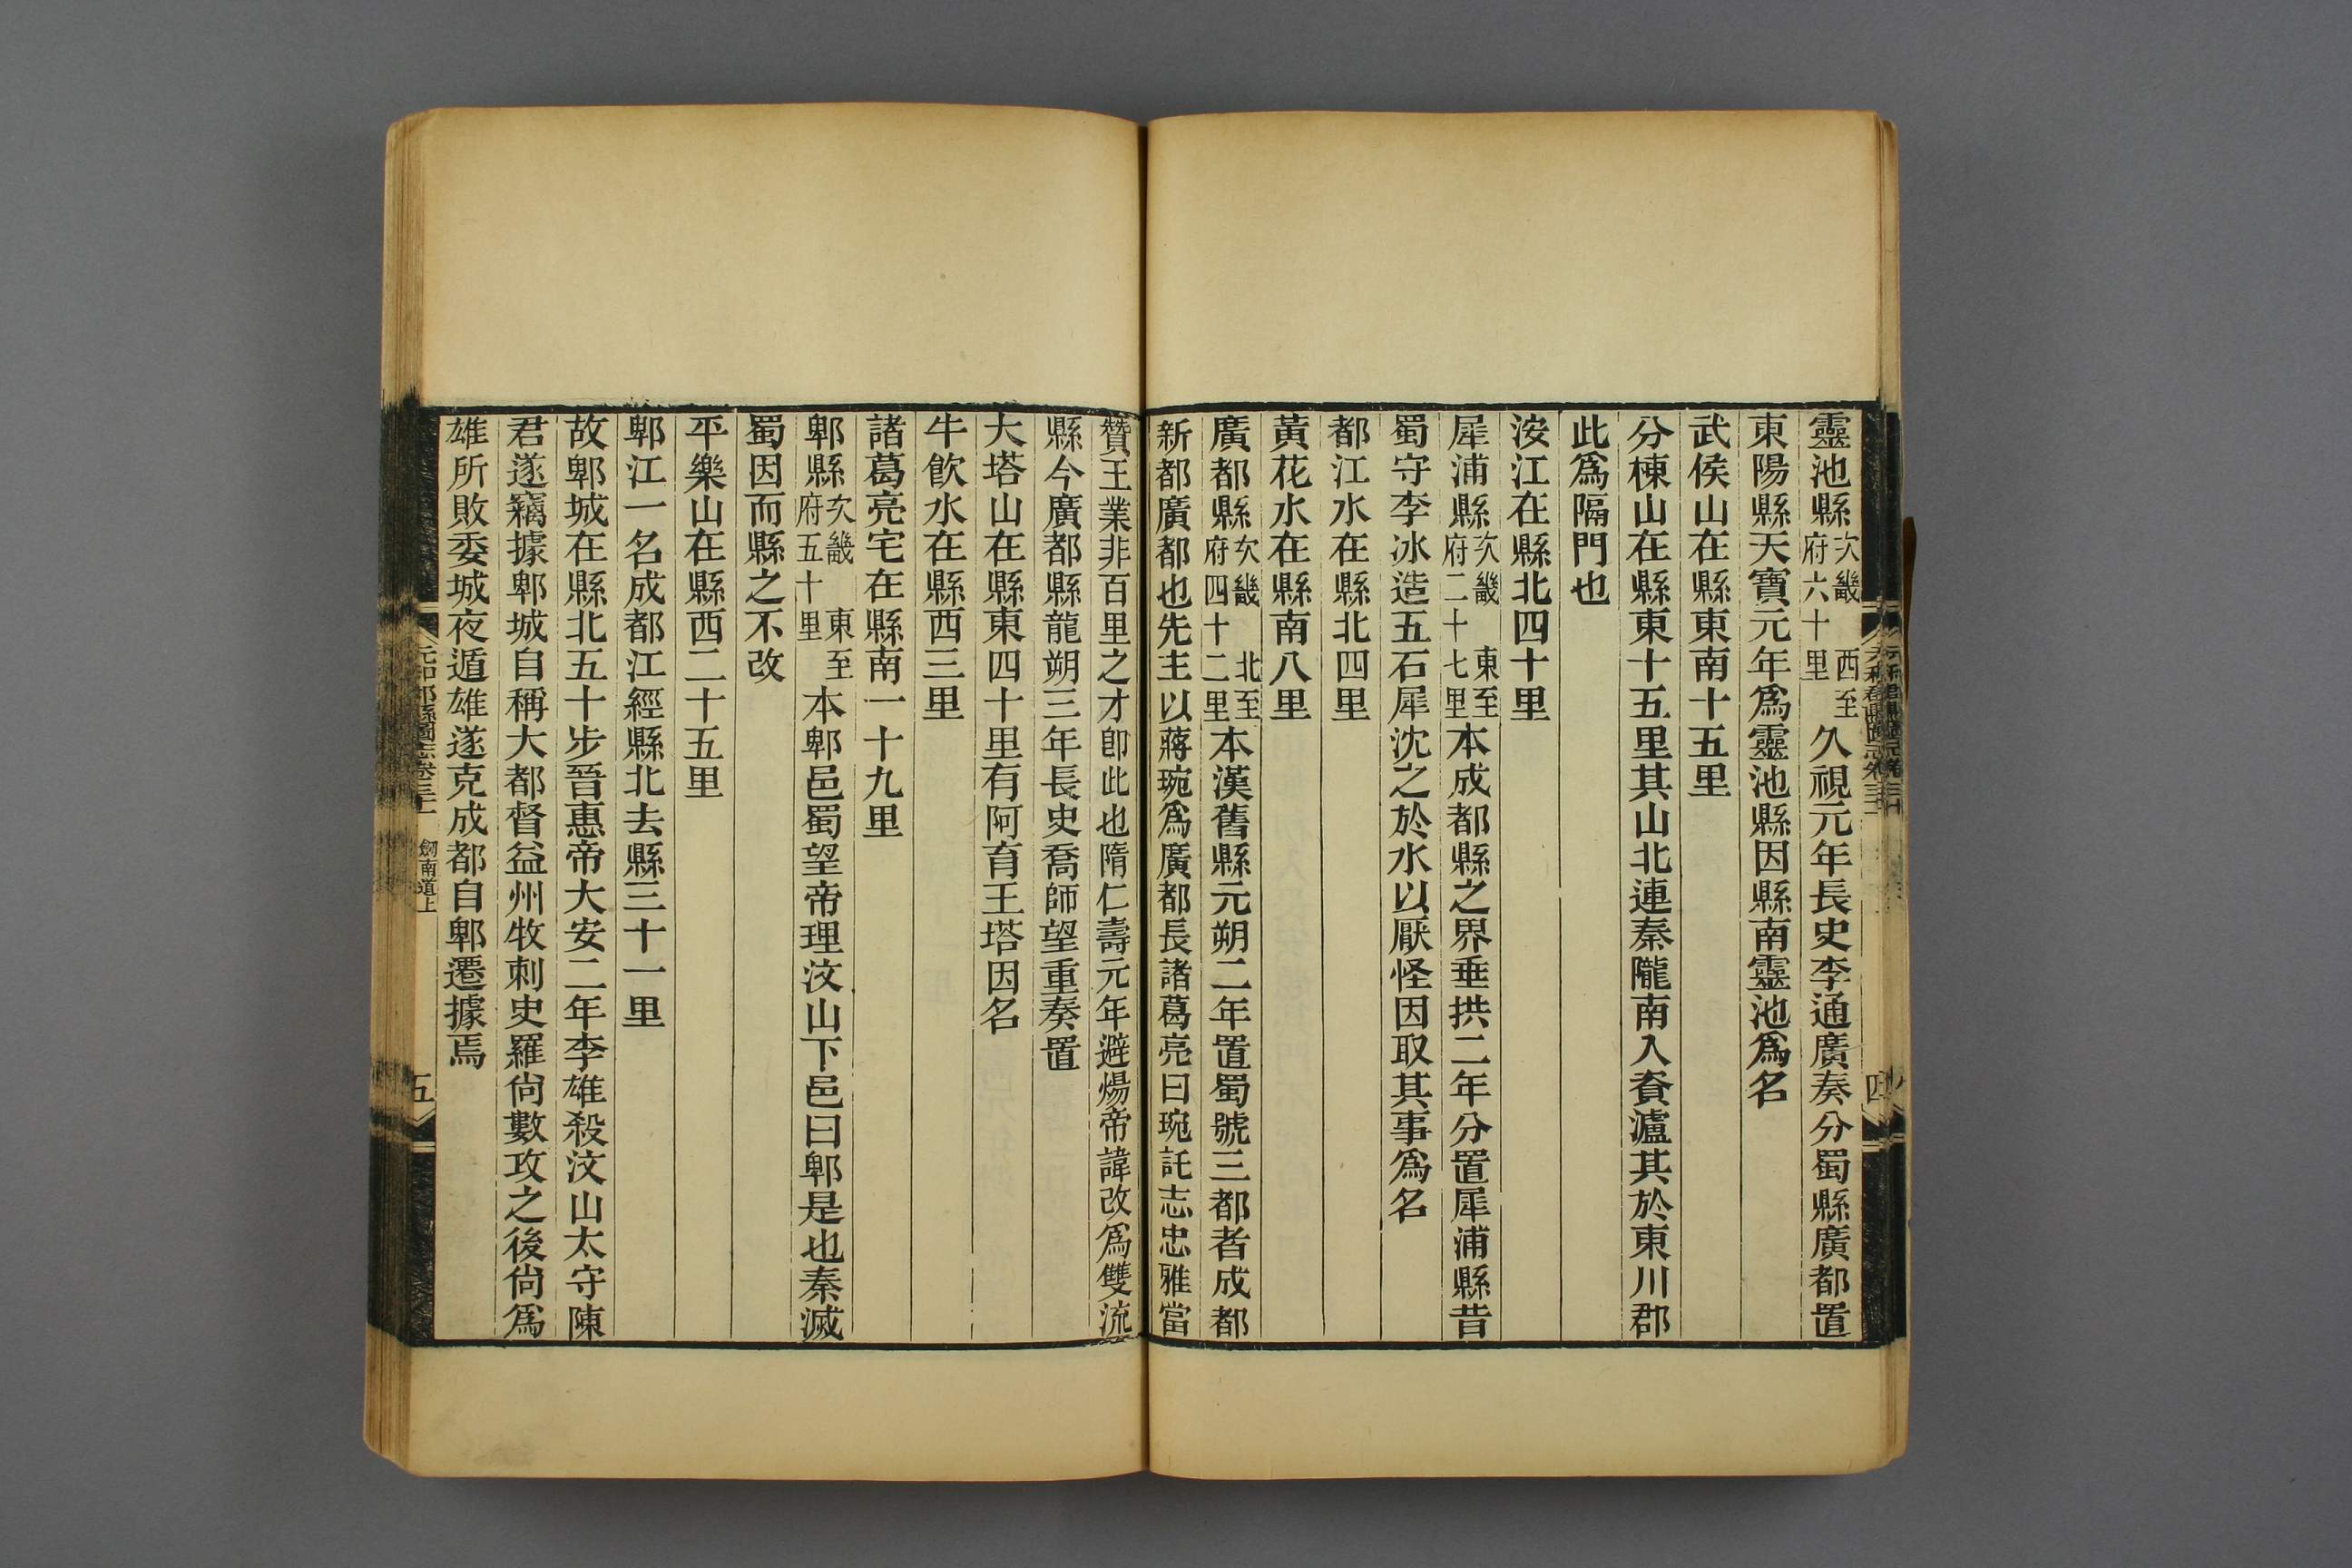 靈池縣次畿西至府六十里久視元年長史李通廣奏分蜀縣廣都置
東陽縣天寶元年爲靈池縣因縣南靈池爲名
武侯山在縣東南十五里
分棟山在縣東十五里其山北連秦隴南入資瀘其於東川郡
此爲隔門也
洝江在縣北四十里
犀浦縣次畿東至府二十七里本成都縣之界垂拱二年分置犀浦縣昔
蜀守李冰造五石犀沈之於水以厭怪因取其事爲名
都江水在縣北四里
黃花水在縣南八里
廣都縣次畿北至府四十二里本漢舊縣元朔二年置蜀號三都者成都
新都廣都也先主以蔣琬爲廣都長諸葛亮曰琬託志忠雅當
贊王業非百里之才卽此也隋仁壽元年避煬帝諱改爲雙流
縣今廣都縣龍朔三年長史喬師望重奏置
大塔山在縣東四十里有阿育王塔因名
牛飮水在縣西三里
諸葛亮宅在縣南一十九里
郫縣次畿東至府五十里本郫邑蜀望帝理汶山下邑曰郫是也秦滅
蜀因而縣之不改
平樂山在縣西二十五里
郫江一名成都江經縣北去縣三十一里
故郫城在縣北五十步晉惠帝大安二年李雄殺汶山太守陳
君遂竊據郫城自稱大都督益州牧刺史羅尙數攻之後尙爲
雄所敗委城夜遁雄遂克成都自郫遷據焉
元和郡縣圖志卷三十一 劒南道上
五
四